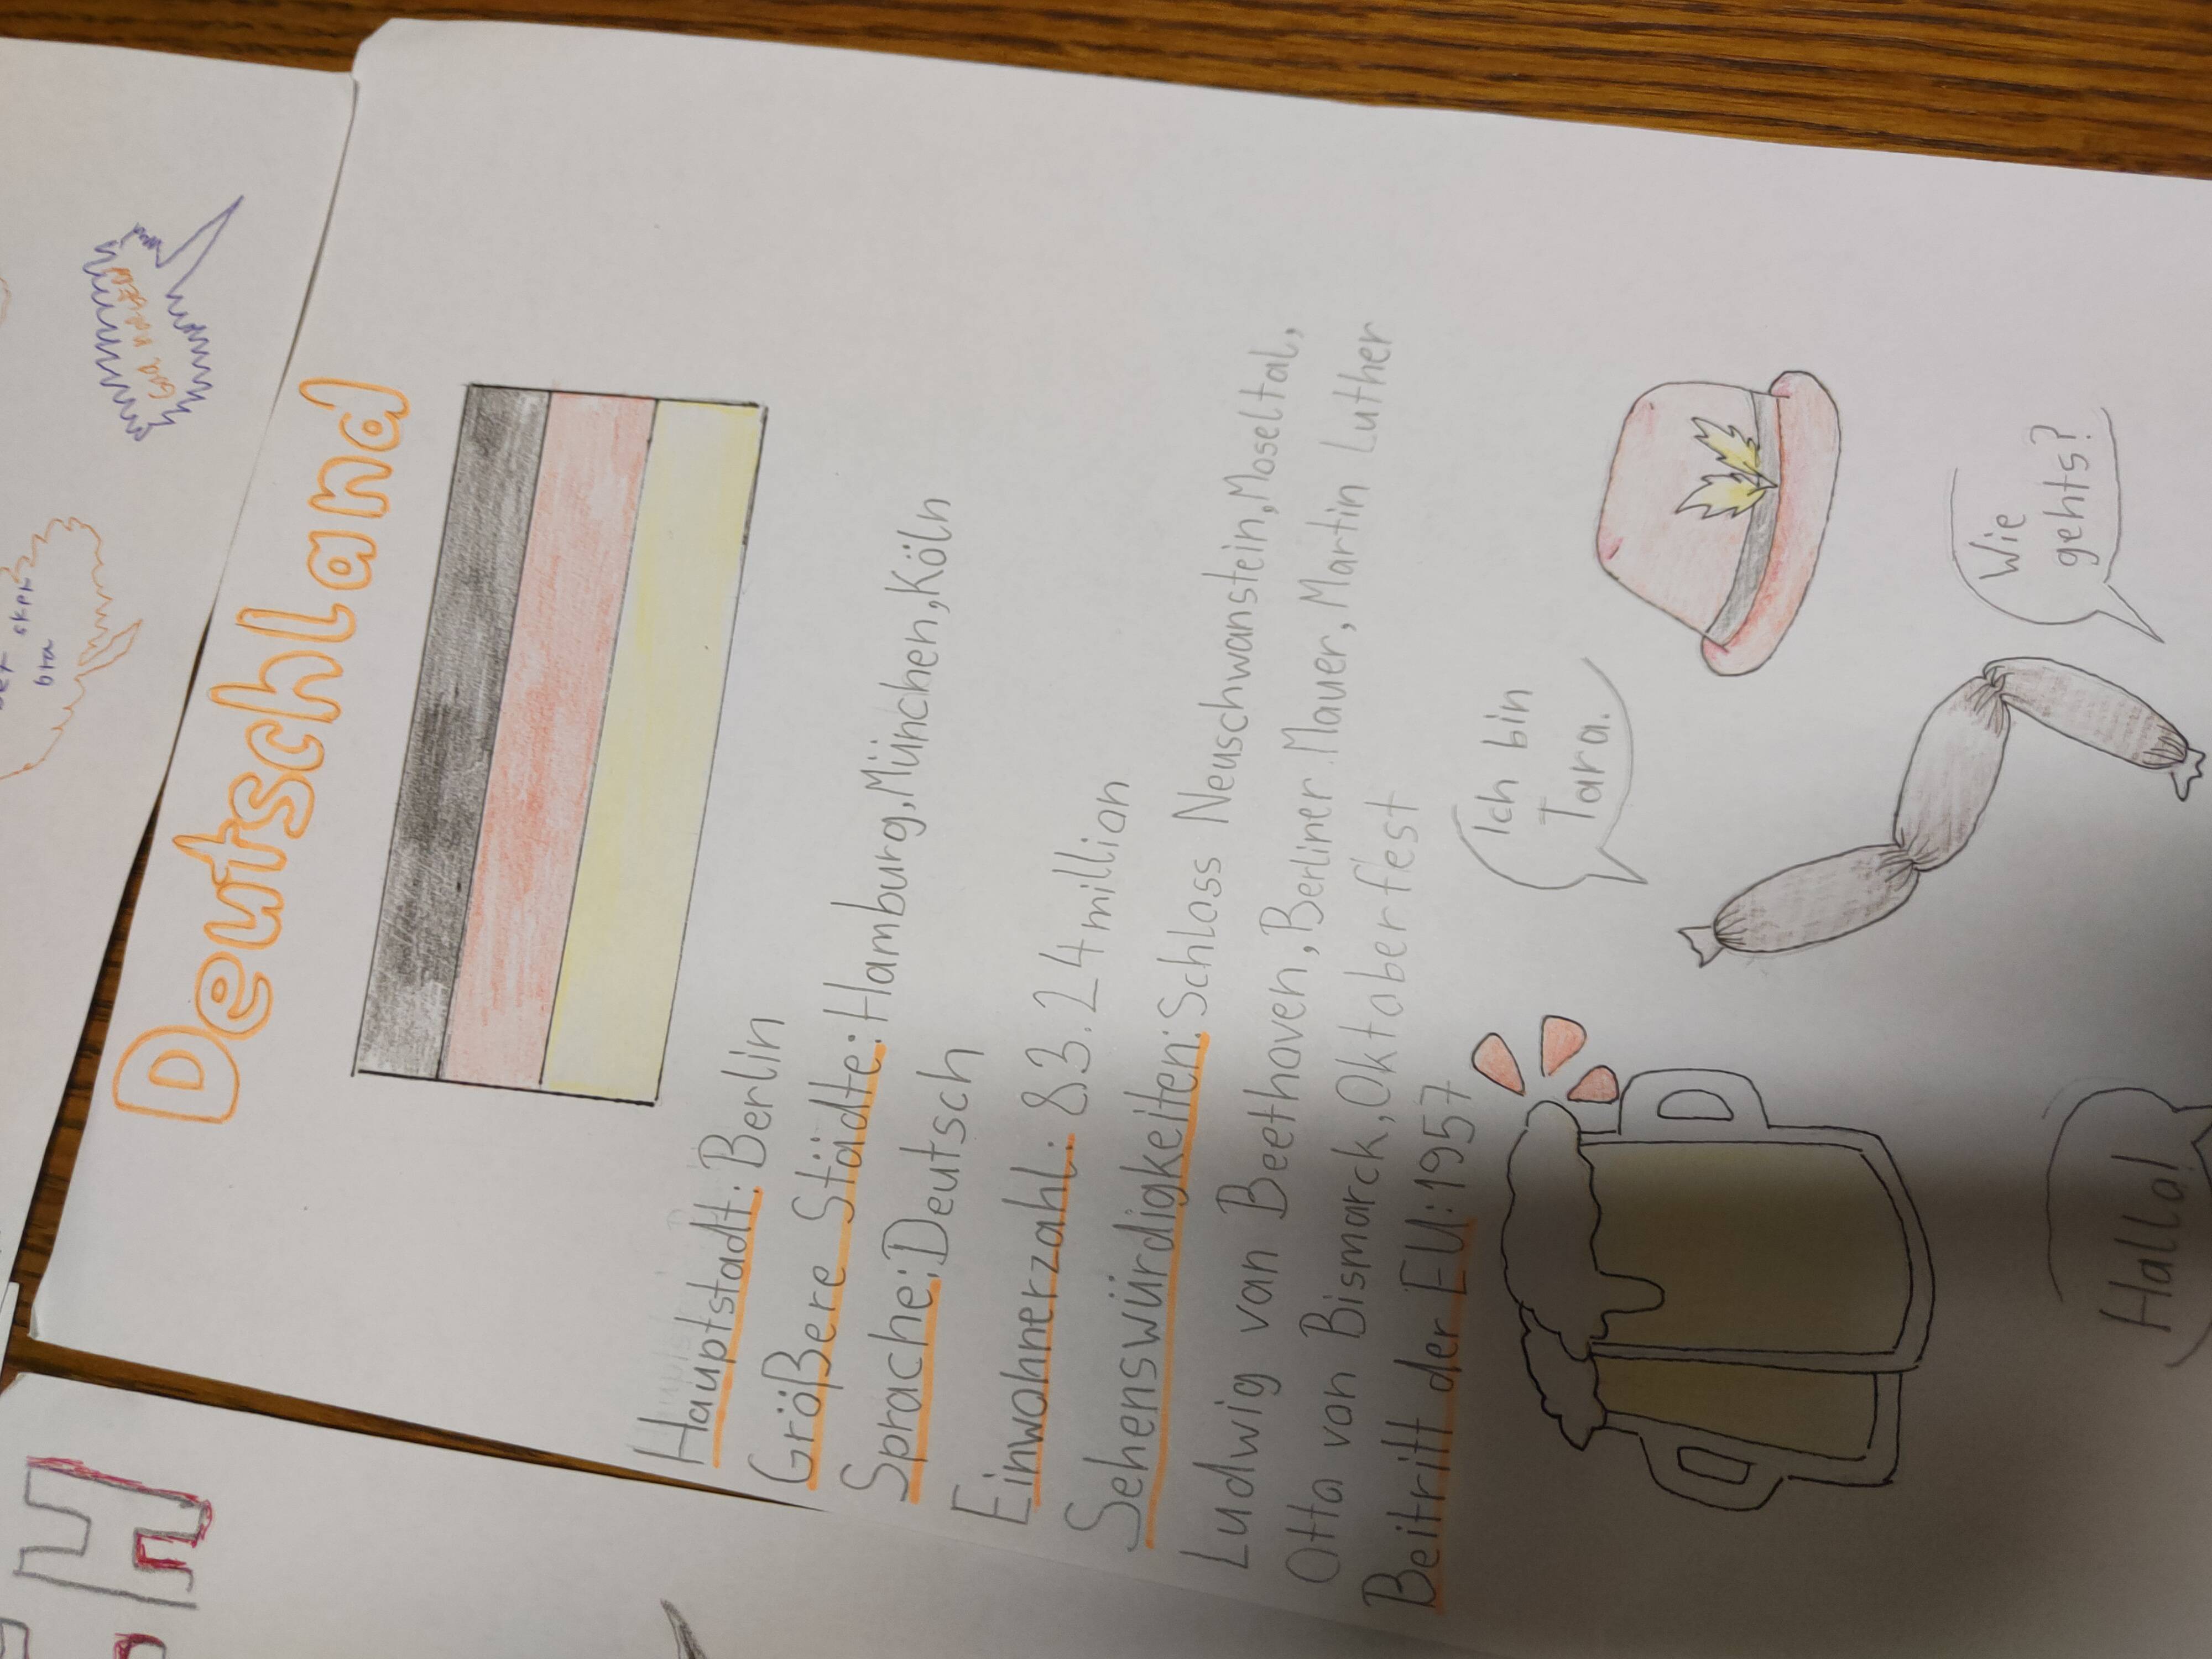 Deutschland
Hauptstadt: Berlin
Größere Städte: Hamburg, München, Köln
Sprache: Deutsch
Einwohnerzahl: 83.24 million
Sehenswürdigkeiten: Schloss Neuschwanstein, Moseltal,
Ludwig van Beethoven, Berliner Mauer, Martin Luther
Otto von Bismarck, Oktoberfest
Beitritt der EU: 1957
Ich bin
Tara.
Wie
gehts?
Hallo!
bra